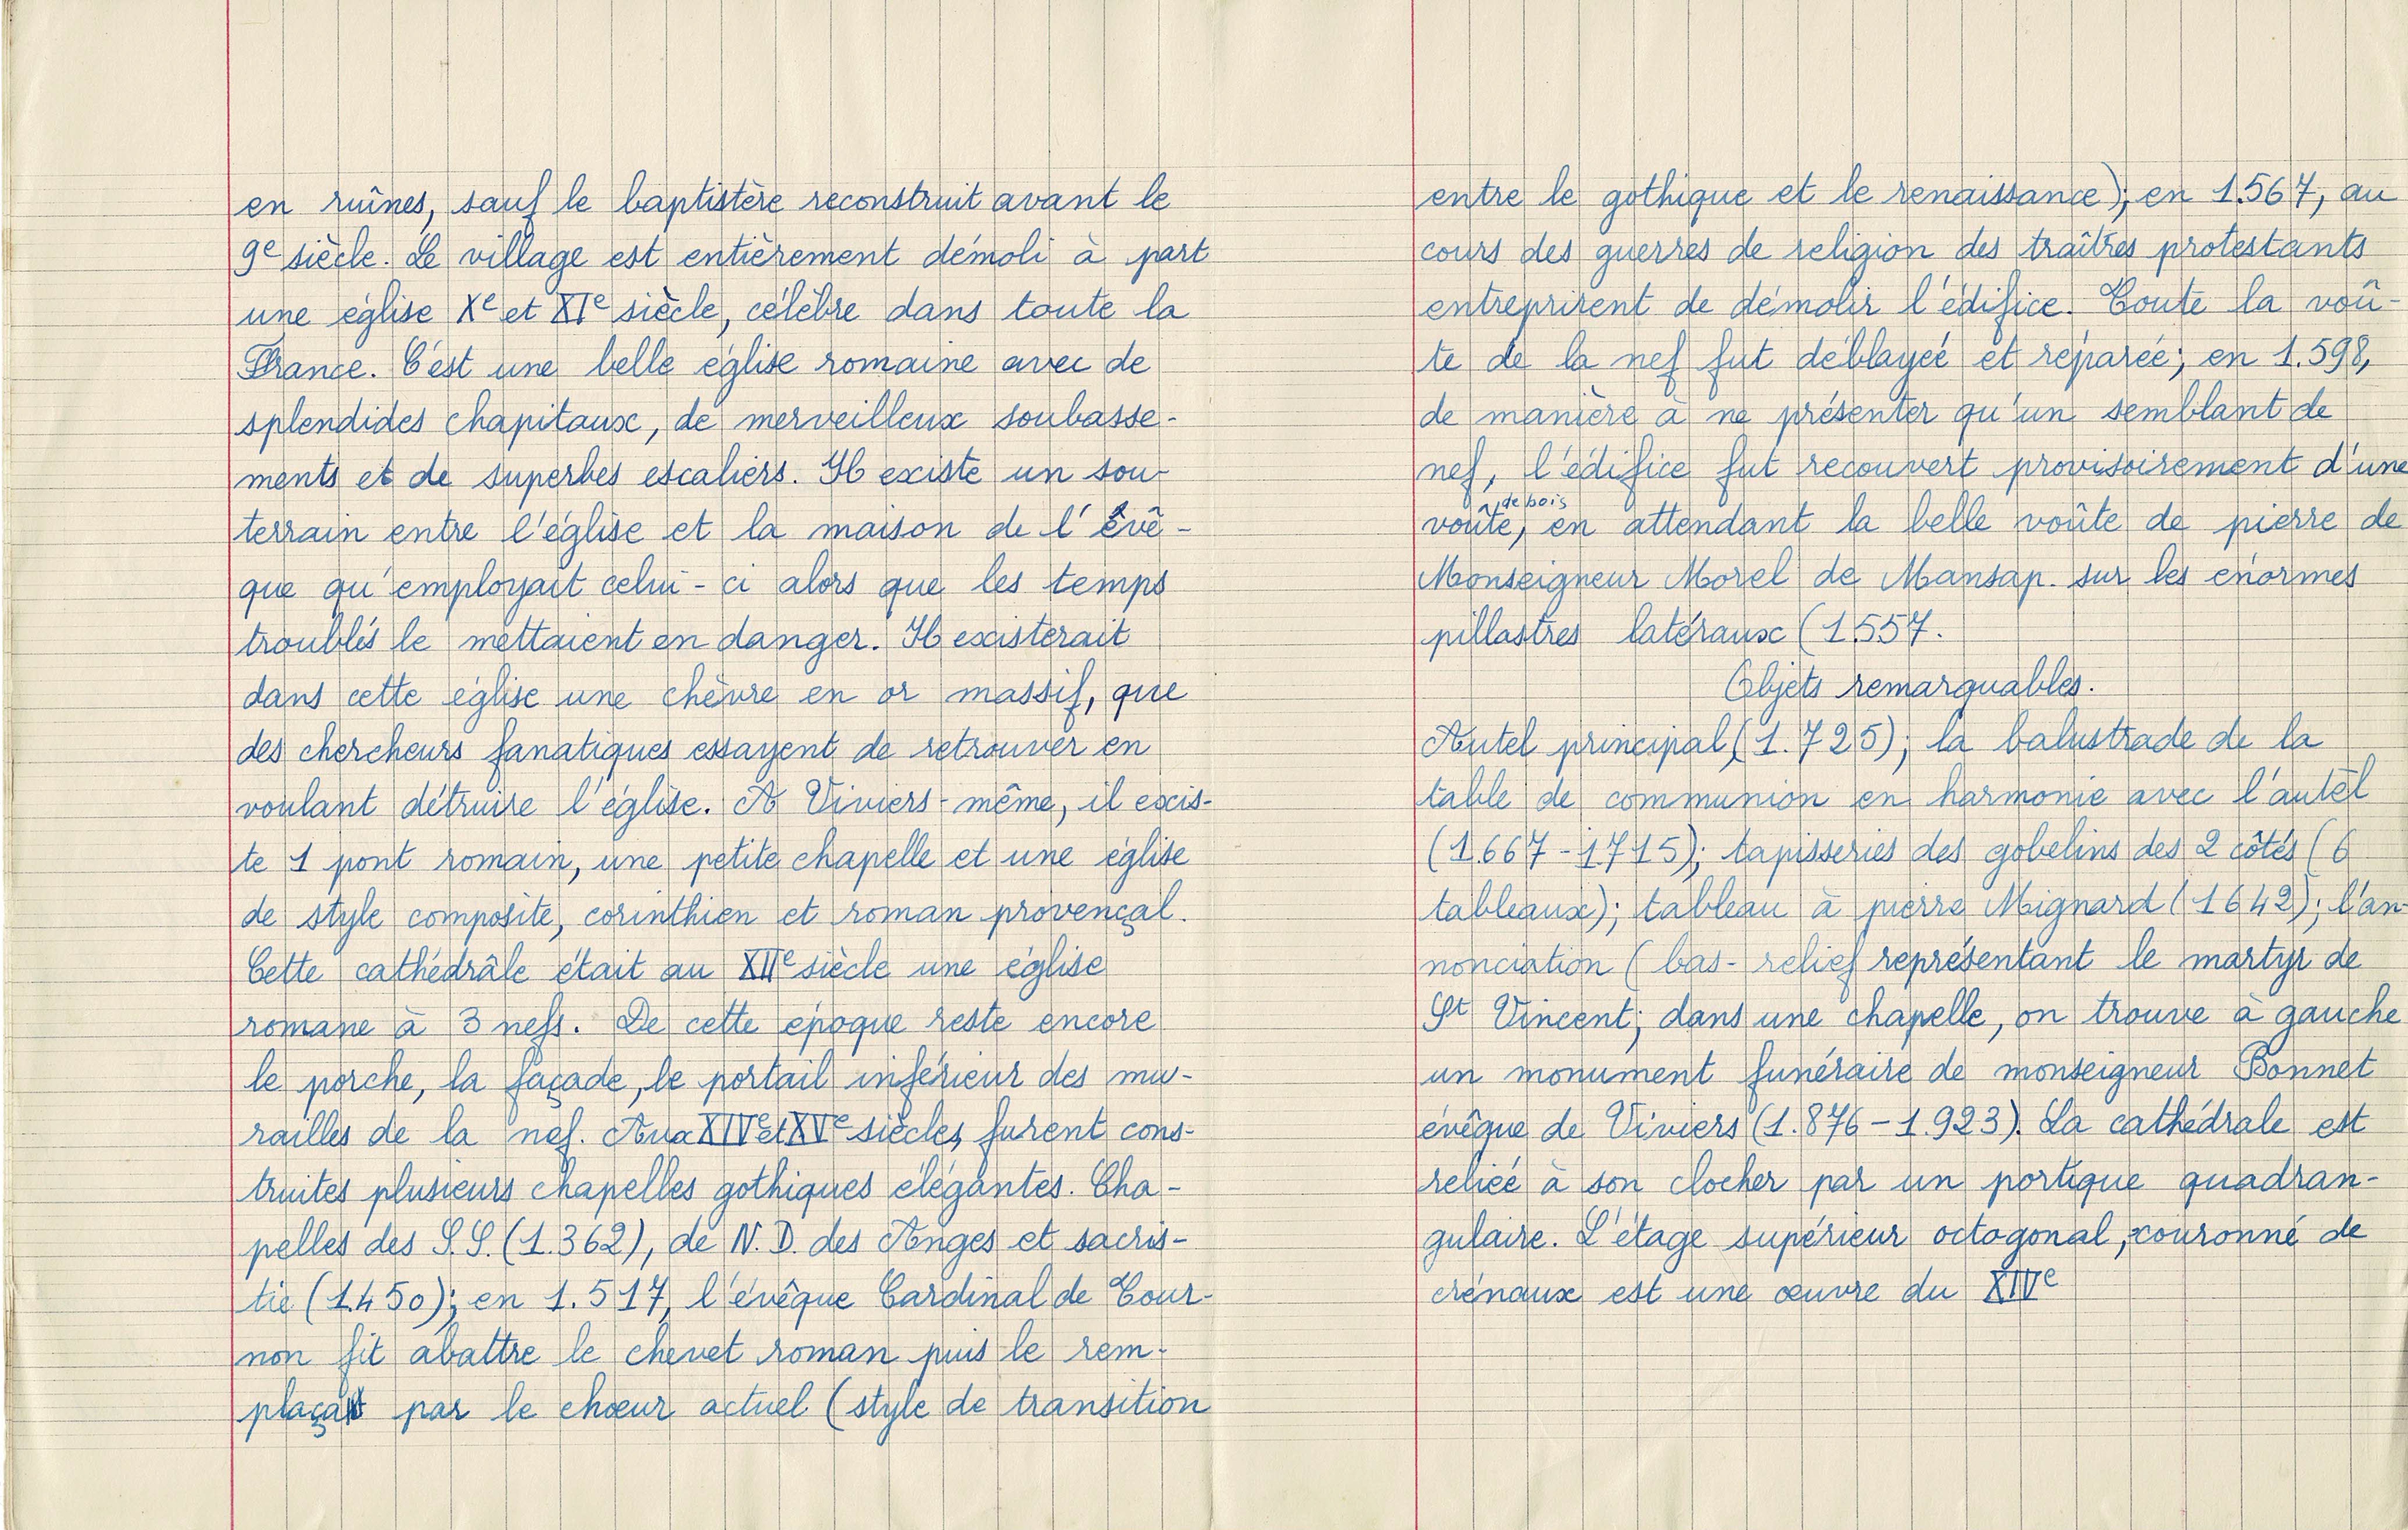 en ruînes, sauf le baptistère reconstruit avant le
9e siècle. Le village est entièrement démoli à part
une église Xe et XIe siècle, célèbre dans toute la
France. C'est une belle église romaine avec de
splendides chapitaux, de merveilleux soubasse-
ments et de superbes escaliers. Il existe un sou-
terrain entre l'église et la maison de l'évê-
que qu'employait celui-ci alors que les temps
troublés le mettaient en danger. Il existerait
dans cette église une chèvre en or massif, que
des chercheurs fanatiques essayent de retrouver en
voulant détruire l'église. A Viviers-même, il exis-
te 1 pont romain, une petite chapelle et une église
de style composite, corinthien et roman provençal.
Cette cathédrâle était au XIIe siècle une église
romane à 3 nefs. De cette époque reste encore
le porche, la façade, le portail inférieur des mu-
railles de la nef. Aux XIVe et XVe siècles, furent cons-
truites plusieurs chapelles gothiques élégantes. Cha-
pelles des S.S. (1.362), de N.D. des Anges et sacris-
tie (1450); en 1.517, l'évêque Cardinal de Tour-
non fit abattre le chevet roman puis le rem-
plaça par le chœur actuel (style de transition
entre le gothique et le renaissance); en 1.567, au
cours des guerres de religion des traîtres protestants
entreprirent de démolir l'édifice. Toute la voû-
te de la nef fut déblayeé et réparée; en 1.598,
de manière à ne présenter qu'un semblant de
nef, l'édifice fut recouvert provisoirement d'une
voûte, de bois en attendant la belle voûte de pierre de
Monseigneur Morel de Mansap. sur les énormes
pillastres latéraux (1557.
Objets remarquables.
Autel principal, (1.725); la balustrade de la
table de communion en harmonie avec l'autel
(1.667-1715); tapisseries des gobelins des 2 côtés (6
tableaux); tableau à pierre Mignard (1642); l'an-
nonciation (bas-relief représentant le martyr de
St Vincent; dans une chapelle, on trouve à gauche
un monument funéraire de monseigneur Bonnet
évêque de Viviers (1.876-1.923). La cathédrale est
relieé à son clocher par un portique quadran-
gulaire. L'étage supérieur octogonal, couronné de
crénaux est une œuvre du XIVe